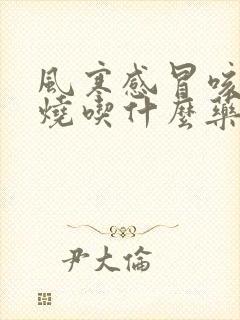 風寒感冒咳
燒喫什麼藥
尹大倫